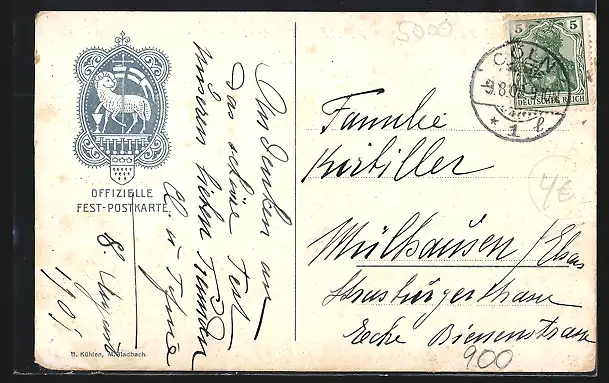 5000
5 5
CÖLN
9.8.09
* 1 l
DEUTSCHES REICH
OFFIZIELLE
FEST-POSTKARTE.
Andenken an
das schöne Fest
unseren lieben Freunden
8. August
Familie
Mülhausen / Elsass
Strasburgerstrasse
Ecke Bienenstrasse
4€
900
B. Kühlen, M.Gladbach.